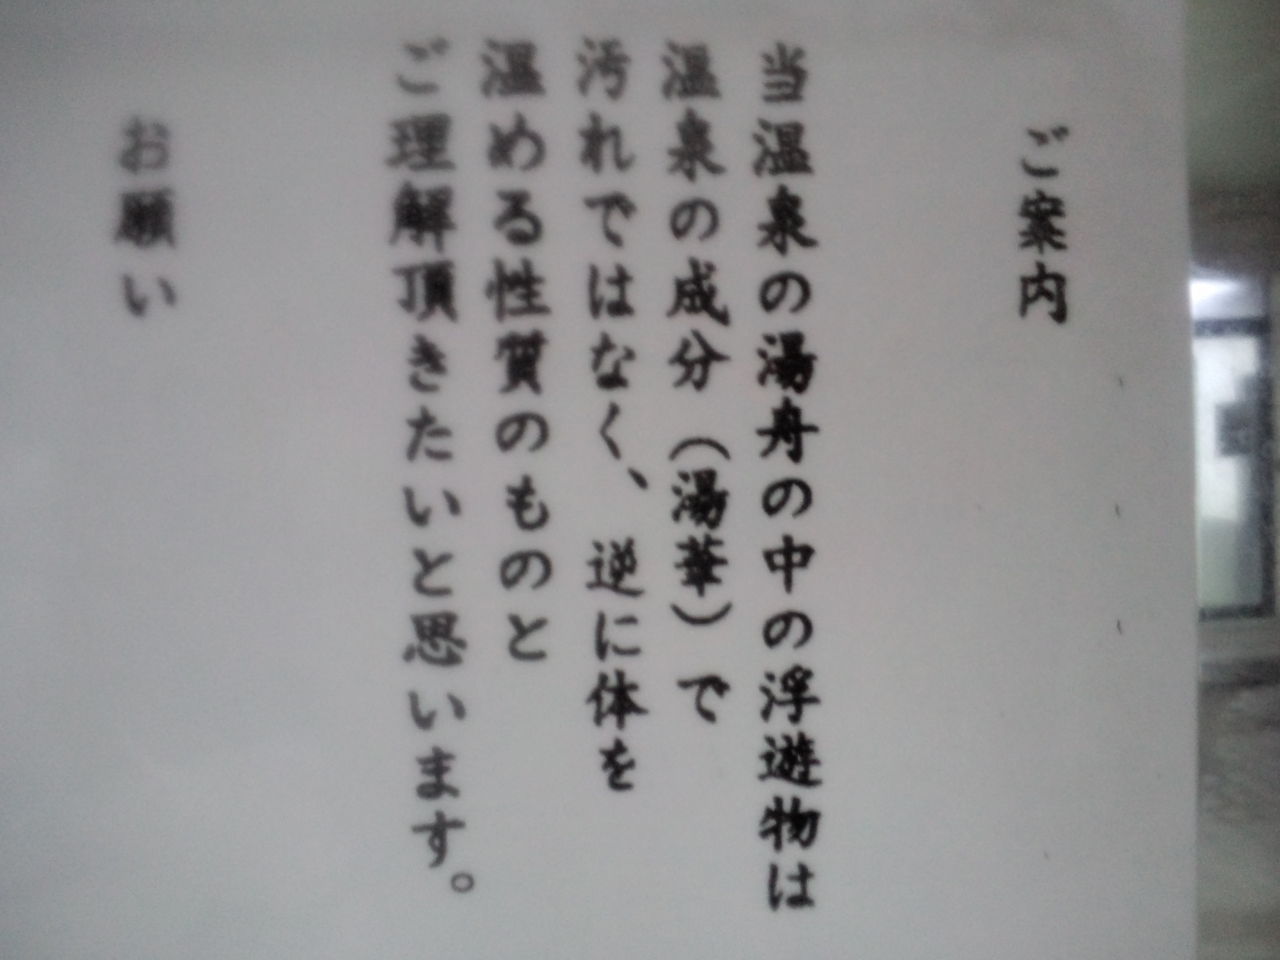 ご案内
当温泉の湯舟の中の浮遊物は
温泉の成分（湯華）で
汚れではなく、逆に体を
温める性質のものと
ご理解頂きたいと思います。
お願い